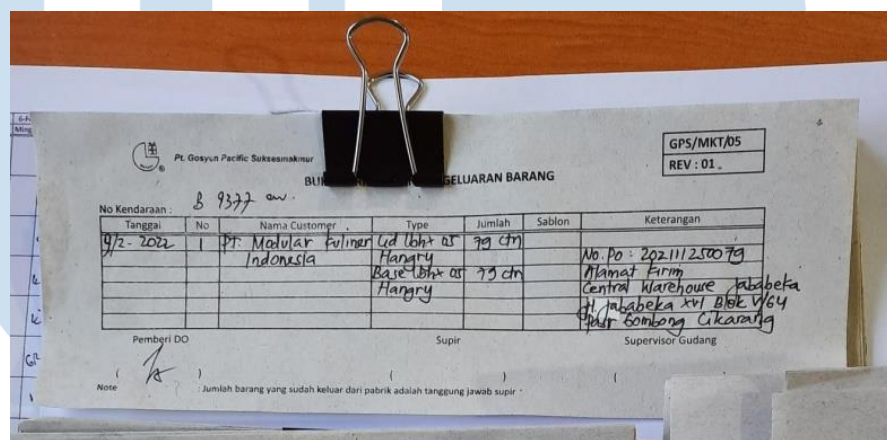 GPS/MKT/05
Pt. Gosyen Pacific Suksesmakmur
REV : 01.
GELUARAN BARANG
No Kendaraan : B 9377
Tanggal No Nama Customer Type Jumlah Sablon Keterangan
9/2-2022 1 PT. Modular Kuliner Lid lbht 05 79 ctn
Indonesia Hangry No. Po : 202111250079
Base lbht 05 79 ctn Alamat Kirim
Hangry Central Warehouse Jababeka
Jl Jababeka XVI Blok V/64
Pasir Gombong Cikarang
Pemberi DO Supir Supervisor Gudang
( ) ( ) (
Note : Jumlah barang yang sudah keluar dari pabrik adalah tanggung jawab supir